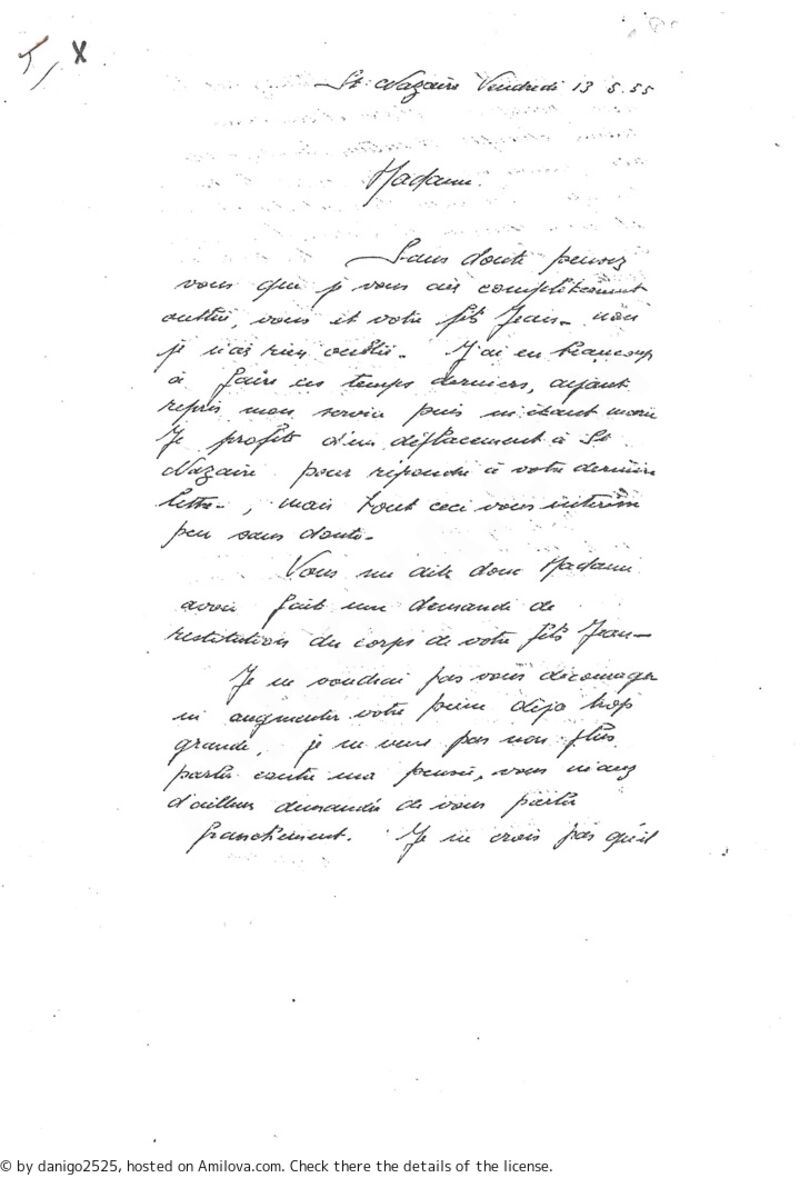 5, X
St Nazaire Vendredi 13 5.55
Madame.
Sans doute pensez
vous que je vous ai complètement
oublié, vous et votre fils Jean- non
je n'ai rien oublié- J'ai eu beaucoup
à faire ces temps derniers, ayant
repris mon service puis m'étant marié
Je profite d'un déplacement à St
Nazaire pour répondre à votre dernière
lettre-, mais tout ceci vous intéresse
peu sans doute-
Vous me dite donc Madame
avoir fait une demande de
restitution du corps de votre fils Jean-
Je ne voudrai pas vous décourager
ni augmenter votre peine déjà trop
grande, je ne veux pas non plus
parler contre ma pensée, vous m'avez
d'ailleurs demandée de vous parler
franchement. Je ne crois pas qu'il
© by danigo2525, hosted on Amilova.com. Check there the details of the license.